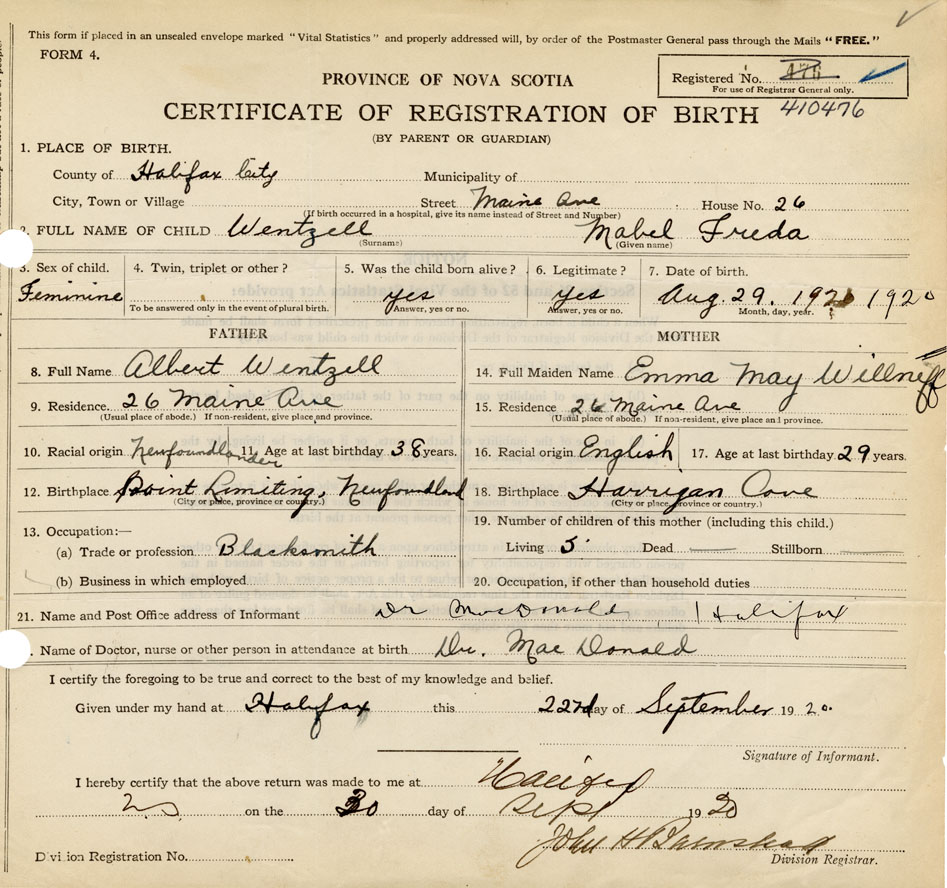 This form if placed in an unsealed envelope marked "Vital Statistics" and properly addressed will, by order of the Postmaster General pass through the Mails "FREE."
FORM 4.
Registered No. 476
For use of Registrar General only.
410476
PROVINCE OF NOVA SCOTIA
CERTIFICATE OF REGISTRATION OF BIRTH
(BY PARENT OR GUARDIAN)
1. PLACE OF BIRTH.
County of Halifax City Municipality of
City, Town or Village Street Maine Ave House No. 26
(If birth occurred in a hospital, give its name instead of Street and Number)
2. FULL NAME OF CHILD Wentzell Mabel Freda
(Surname) (Given name)
3. Sex of child. 4. Twin, triplet or other? 5. Was the child born alive? 6. Legitimate? 7. Date of birth.
Feminine yes yes Aug. 29. 1920
To be answered only in the event of plural birth. Answer, yes or no. Answer, yes or no. Month, day, year.
FATHER MOTHER
8. Full Name Albert Wentzell 14. Full Maiden Name Emma May Willneff
9. Residence 26 Maine Ave 15. Residence 26 Maine Ave
(Usual place of abode.) If non-resident, give place and province. (Usual place of abode.) If non-resident, give place and province.
10. Racial origin Newfoundlander 11. Age at last birthday 38 years. 16. Racial origin English 17. Age at last birthday 29 years.
12. Birthplace Point Limiting, Newfoundland 18. Birthplace Harrigan Cove
(City or place, province or country.) (City or place, province or country.)
13. Occupation:— 19. Number of children of this mother (including this child.)
(a) Trade or profession Blacksmith Living 5 Dead — Stillborn —
(b) Business in which employed 20. Occupation, if other than household duties
21. Name and Post Office address of Informant Dr MacDonald Halifax
. Name of Doctor, nurse or other person in attendance at birth Dr. MacDonald
I certify the foregoing to be true and correct to the best of my knowledge and belief.
Given under my hand at Halifax this 22nd day of September 1920.
Signature of Informant.
I hereby certify that the above return was made to me at Halifax
N S on the 30 day of Sept 1920
John H Barnstead
Division Registration No. Division Registrar.